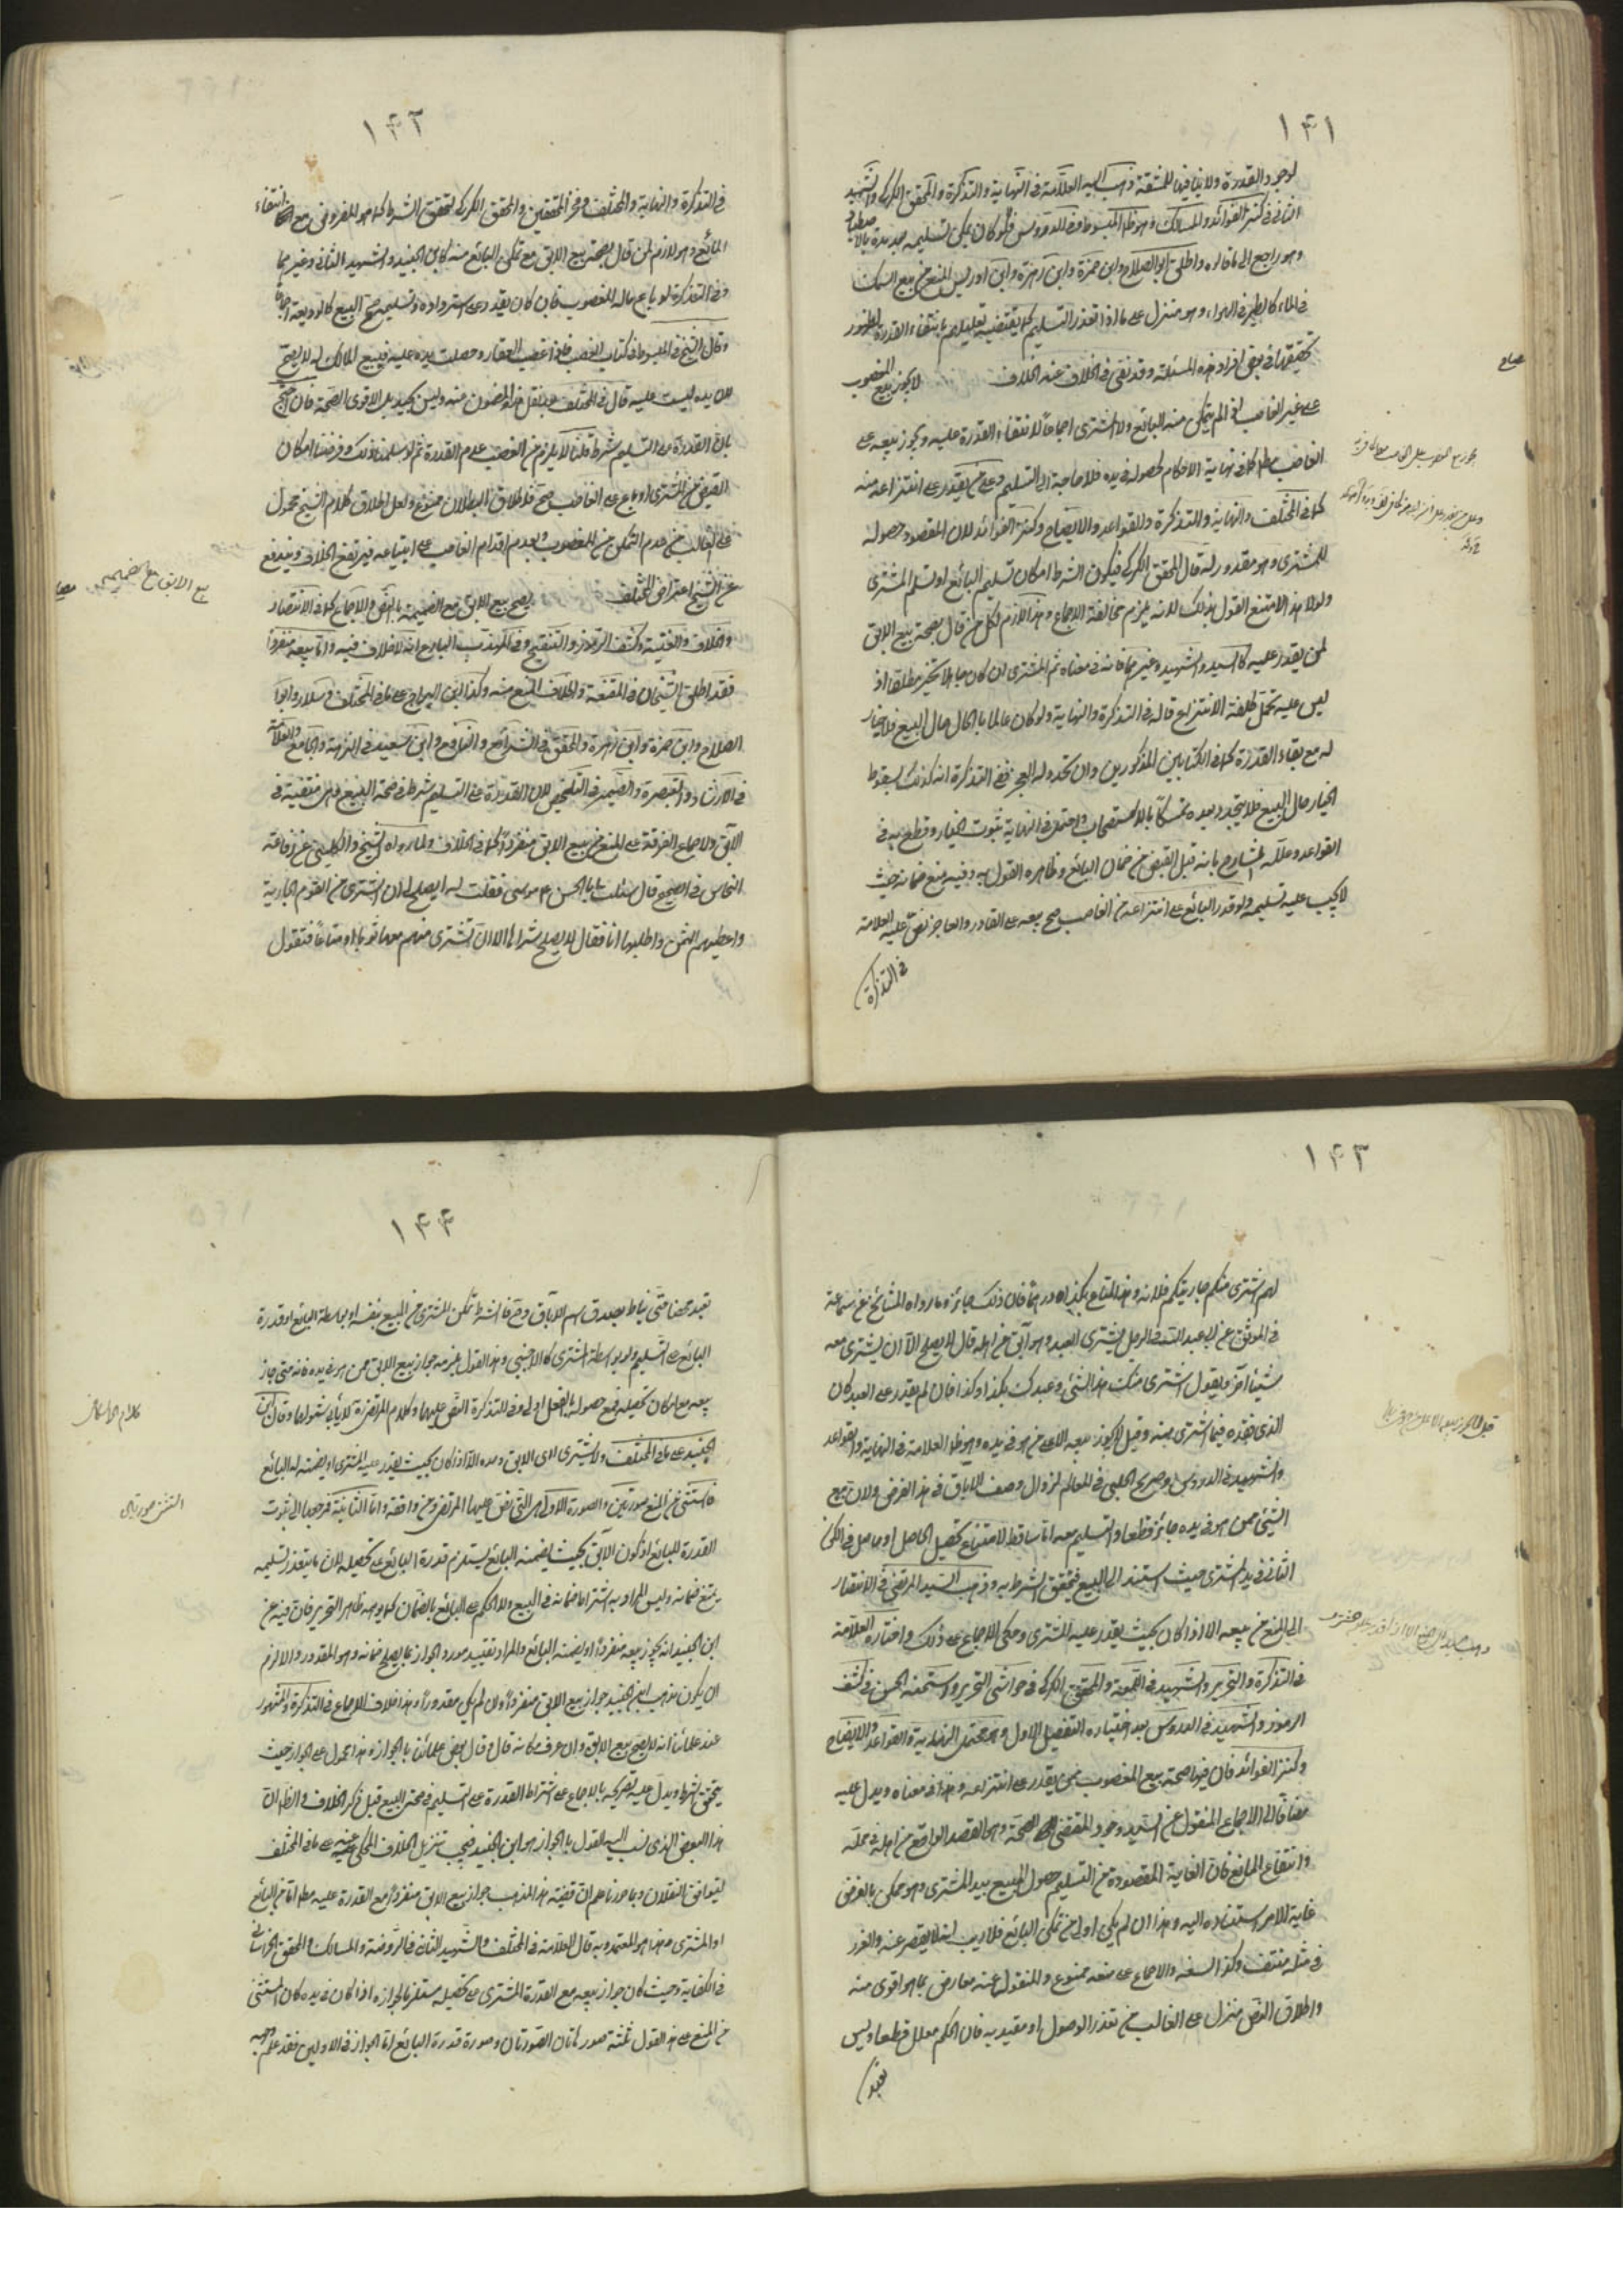 ١۴١
لوجود القدرة ولا ينافيها المشقة وذهب اليه العلامة في النهاية والتذكرة والمحقق الكركي والشهيد
الثاني في كنز الفوائد والمسالك وهو ظ المبسوط وفي الدروس فلو كان يمكن تسليمه بعد مدة بالاصطياد
وهو راجع الى ما قالوه واطلق ابو الصلاح وابن حمزة وابن زهرة وابن ادريس المنع من بيع السمك
في الماء كالطير في الهواء وهو منزل على ما اذا تعذر التسليم كما يقتضيه تعليلهم بانتفاء القدرة لظهور
تحققها في بعض افراد هذه المسئلة وقد نفى في الخلاف عنه الخلاف لا يجوز بيع المغصوب
على غير الغاصب اذا لم يتمكن منه البائع ولا المشتري اجماعاً لانتفاء القدرة عليه ويجوز بيعه على
الغاصب مطلقا كما في نهاية الاحكام لحصوله في يده فلا حاجة الى التسليم وعلى من يقدر على انتزاعه منه
كما في المختلف والنهاية والتذكرة والقواعد والايضاح وكنز الفوائد لان المقصود حصوله
للمشتري وهو مقدور له قال المحقق الكركي فيكون الشرط امكان تسليم البائع او تسلم المشتري
ولولا هذا لامتنع القول بذلك لانه يلزم مخالفة الاجماع وهذا لازم لكل من قال بصحة بيع الابق
لمن يقدر عليه كالسيد والشهيد وغيرهما فانه في معناه ثم المشتري ان كان جاهلا تخير مطلقا اذ
ليس عليه تحمل كلفة الانتزاع قاله في التذكرة والنهاية ولو كان عالما بالحال حال البيع فلا خيار
له مع بقاء القدرة كما في الكتابين المذكورين وان تجدد له العجز ففي التذكرة انه كذلك لسقوط
الخيار حال البيع فلا يتجدد بعده تمسكاً بالاستصحاب واحتمل في النهاية ثبوت الخيار وقطع به في
القواعد وعلله الشارح بانه قبل القبض من ضمان البائع وظاهره القول به وفيه منع ضمانه حيث
لا يجب عليه تسليمه ولو قدر البائع على انتزاعه من الغاصب صح بيعه على القادر والعاجز نص عليه العلامة
في التذكرة
١۴٢
في التذكرة والنهاية والمختلف وفخر المحققين والمحقق الكركي لتحقق الشرط كما هو المفروض مع انتفاء
المانع وهو لازم لمن قال بصحة بيع الابق مع تمكن البائع منه كابن الجنيد والشهيد الثاني وغيرهما
وفي التذكرة لو باع ماله المغصوب فان كان يقدر على استرداده وتسليمه صح البيع كالوديعة اجماعا
وقال الشيخ في المبسوط في كتاب الغصب فان غصب العقار وحصلت يده عليه فبيع المالك له لا يصح
لان يده ليست عليه قال في المختلف وليس بجيد بل الاقوى الصحة فان احتج
بان القدرة على التسليم شرط قلنا لا يلزم من الغصب عدم القدرة ثم لو سلمنا ذلك وفرضنا امكان
القبض من المشتري او باع على الغاصب صح فاطلاق البطلان ممنوع ولعل اطلاق كلام الشيخ محمول
على الغالب من عدم التمكن من المغصوب وبعدم اقدام الغاصب على ابتياعه فيرتفع الخلاف ويندفع
عن الشيخ اعتراض المختلف يصح بيع الابق مع الضميمة بالنص والاجماع كما في الانتصار
والخلاف والغنية وكشف الرموز والتنقيح وفي المهذب البارع انه لا خلاف فيه واما بيعه منفرداً
فقد اطلق الشيخان في المقنعة والخلاف المنع منه وكذا ابن البراج على ما في المختلف وسلار وابو
الصلاح وابن حمزة وابن زهرة والمحقق في الشرائع والنافع وابن سعيد في النزهة والجامع والعلامة
في الارشاد والتبصرة والصيمري في التلخيص لان القدرة على التسليم شرط في صحة البيع وهي منتفية في
الآبق ولاجماع الفرقة على المنع من بيع الابق منفرداً كما في الخلاف ولما رواه الشيخ والكليني عن رفاعة
النخاس في الصحيح قال سئلت ابا الحسن موسى فقلت له ايصلح لي ان اشتري من القوم الجارية
واعطيهم الثمن واطلبها انا فقال لا يصلح شرائها الا ان تشتري منهم معها ثوبا او متاعاً فتقول
بيع الابق مع الضميمة
١۴٣
لهم اشتري منكم جاريتكم فلانة وهذا المتاع بكذا درهماً فان ذلك جائز وما رواه المشايخ عن سماعة
في الموثق عن ابي عبد الله في الرجل يشتري العبد وهو آبق عن اهله قال لا يصلح الا ان يشتري معه
شيئاً آخر ويقول اشتري منك هذا الشئ وعبدك بكذا وكذا فان لم يقدر على العبد كان
الذي نقده فيما اشترى منه وقيل لا يجوز بيعه الا على من هو في يده وهو ظ العلامة في النهاية والقواعد
والشهيد في الدروس وصريح الحلبي في المعالم لزوال وصف الاباق في هذا الفرض ولان بيع
الشئ ممن هو في يده جائز قطعا والتسليم معه اما ساقط لامتناع تحصيل الحاصل او حاصل في الكون
الثاني في يد المشتري حيث استند الى البيع فيتحقق الشرط به وذهب السيد المرتضى في الانتصار
الى المنع من بيعه الا اذا كان بحيث يقدر عليه المشتري وحكى الاجماع على ذلك واختاره العلامة
في التذكرة والتحرير والشهيد في اللمعة والمحقق الكركي في حواشي التحرير واستحسنه الحسن في كشف
الرموز والشهيد في الدروس بعد اختياره التفصيل الاول وهو محتمل النهاية والقواعد والايضاح
وكنز الفوائد فان فيها صحة بيع المغصوب ممن يقدر على انتزاعه وهذا في معناه ويدل عليه
مضافاً الى الاجماع المنقول عن السيد وجود المقتضي للصحة وهو العقد الواقع من اهله في محله
وانتفاء المانع فان الغاية المقصودة من التسليم حصول المبيع بيد المشتري وهو ممكن بالفرض
غاية الامر استناده اليه وهذا ان لم يكن اولى من تمكن البائع فلا ريب انه لا يقصر عنه والغرر
في مثله منتف وكذا السفه والاجماع على منعه ممنوع والمنقول منه معارض بما هو اقوى منه
واطلاق النص منزل على الغالب من تعذر الوصول او مقيد به فان الحكم معلل قطعا وليس
تعبد
١۴۴
تعبد محضا حتى يناط بصدق اسم الاباق وح فالشرط تمكن المشتري من المبيع بنفسه او بواسطة البائع او قدرة
البائع على التسليم ولو بواسطة المشتري كالاجنبي وهذا القول يلزمه جواز بيع الابق ممن هو في يده فانه متى جاز
بيعه مع امكان تحصيله فمع حصوله بالفعل اولى وفي التذكرة النص عليهما وكلام المرتضى لا يأبى شمولهما وقال ابن
الجنيد على ما في المختلف ولا يشتري الابق وحده الا اذا كان بحيث يقدر عليه المشتري او يضمنه له البائع
فاستثنى من المنع صورتين والصورة الاولى هي التي نص عليها المرتضى ومن وافقه واما الثانية فمرجعها الى ثبوت
القدرة للبائع اذ كون الآبق بحيث يضمنه البائع يستلزم قدرة البائع على تحصيله لان ما يتعذر تسليمه
يمتنع ضمانه وليس المراد به اشتراط ضمانه في البيع ولا الحكم على البائع بالضمان كما يوهمه ظاهر التحرير فان فيه عن
ابن الجنيد انه يجوز بيعه منفرداً او يضمنه البائع والمراد تقييد مورد الجواز بما يصلح ضمانه وهو المقدور والا لزم
ان يكون مذهب ابن الجنيد جواز بيع الابق منفرداً وان لم يكن مقدوراً وهذا خلاف الاجماع وفي التذكرة والمشهور
عند علمائنا انه لا يصح بيع الابق وان عرف مكانه قال وقال بعض علمائنا بالجواز وهذا محمول على الجواز حيث
يتحقق الشرط ويدل عليه تصريحه بالاجماع على اشتراط القدرة على التسليم في صحة البيع قبل ذكر الخلاف والظ ان
هذا البعض الذي نسب اليه القول بالجواز هو ابن الجنيد فيجب تنزيل الخلاف المحكي عنه على ما في المختلف
ليتوافق النقلان وبما حررنا علم ان قضية هذا المذهب جواز بيع الابق منفرداً مع القدرة عليه مطلقا اما من البائع
او المشتري وهذا هو المعتمد وبه قال العلامة في المختلف والشهيد الثاني في الروضة والمسالك والمحقق الخراساني
في الكفاية وحيث كان جواز بيعه مع القدرة المشتري على تحصيله مستلزما لجوازه اذا كان في يده كان المستثنى
من المنع على هذا القول ثلثة صور هاتان الصورتان وصورة قدرة البائع اما الجواز في الاوليين فقد علم وجهه